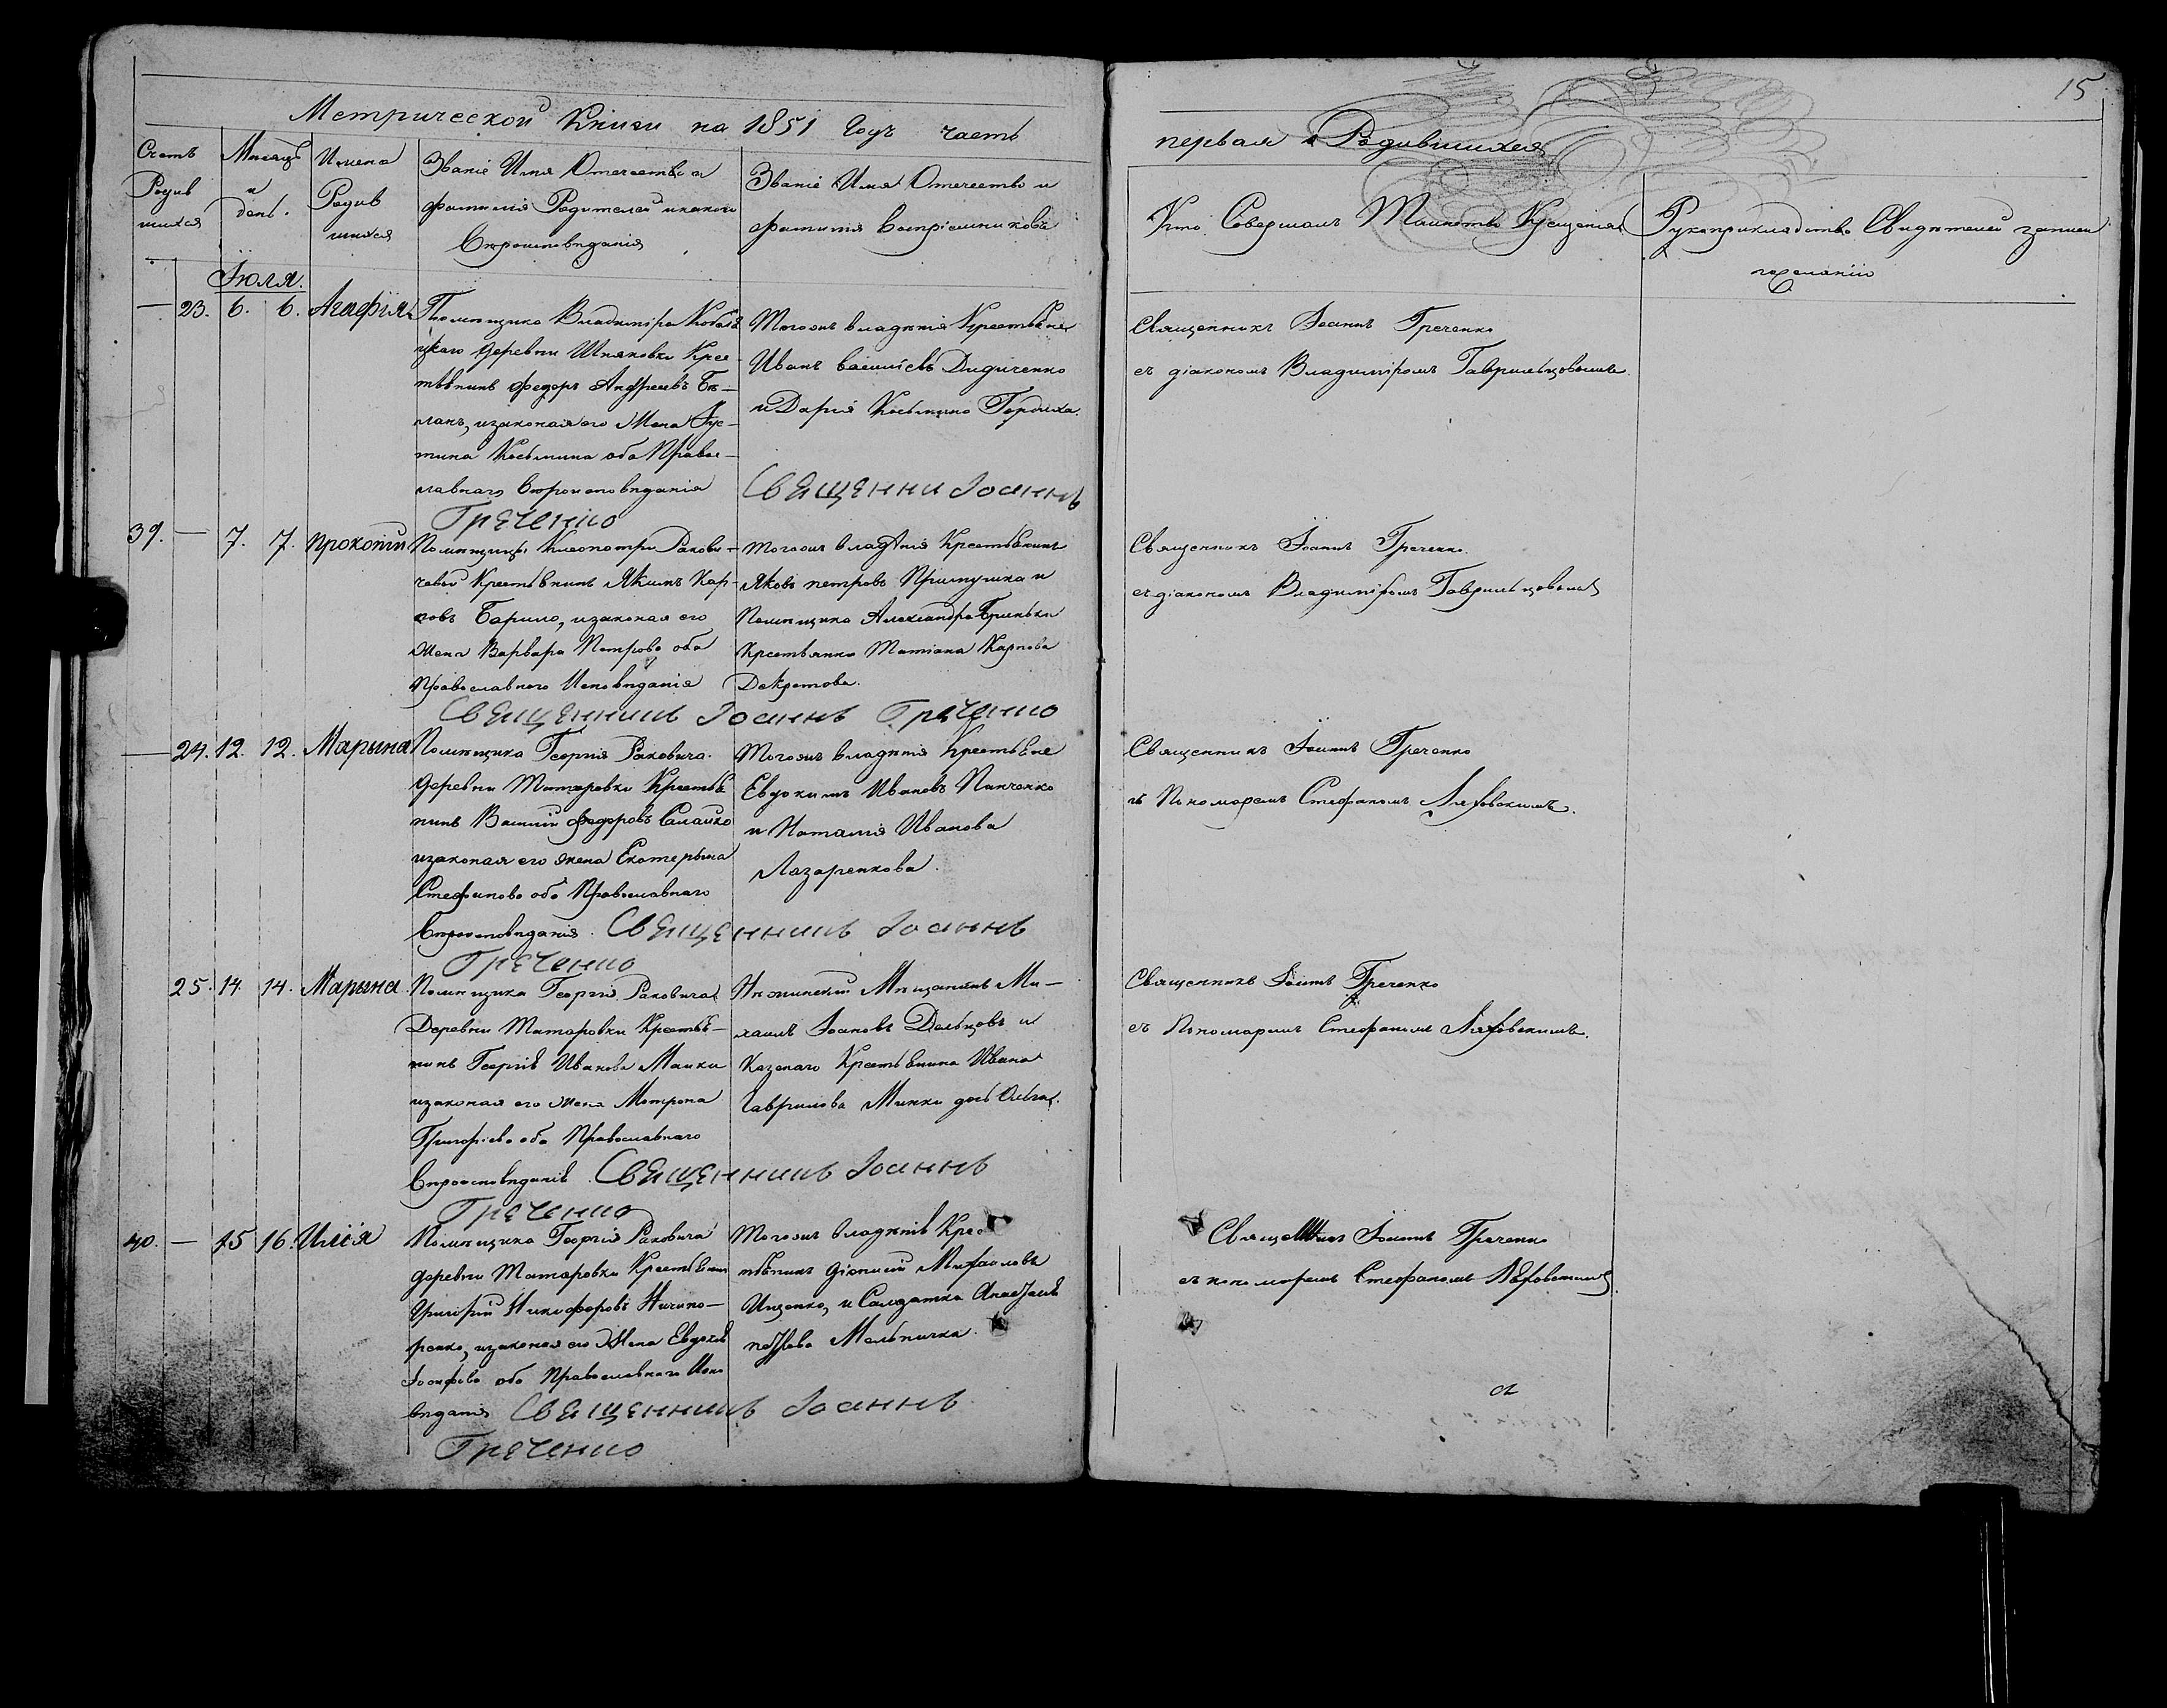 15
Метрической Книги на 1851 Годъ часть
первая о Родившихся
Счетъ Родив шихся
Мѣсяцъ и день.
Имена Родив шихся
Званіе Имя Отечество и
фамилія Родителей и какого
Вѣроисповѣданія
Званіе Имя Отечество и
фамилія Воспріемниковъ
Кто Совершалъ Таинство Крещенія
Рукоприкладство Свидѣтелей записи
по желанію
Іюля.
— 23. 6. 6. Агафія
Помѣщика Владиміра
деревни Шняковки Крес
тьянинъ Федоръ Андреевъ Бѣ-
ланъ, изаконая его Жена Іус-
тина Косьмина оба Правос-
лавнаго Вѣроисповѣданія
Тогожъ владѣнія Крестьяне
Иванъ Василіевъ Дидиченко
и Дарія Косьмина
Священни Іоаннъ
Греченко
Священникъ Іоаннъ Греченко
съ діакономъ Владиміромъ Гаврильцовымъ.
39. — 7. 7. Прокопій
Помѣщицы Клеопатры Ракови-
чевой Крестьянинъ Якимъ Кар-
повъ Барило, изаконая его
Жена Варвара Петрова оба
Православнаго Исповѣданія
Тогожъ владѣнія Крестьянинъ
Яковъ Петровъ Примушка и
Помѣщика Александра Гриньки
Крестьянка Татіана Карпова
Декретова.
Священникъ Іоаннъ Греченко
Священникъ Іоаннъ Греченко.
съ діакономъ Владиміромъ Гаврильцовымъ
— 24. 12. 12. Марына
Помѣщика Георгія Раковича.
деревни Татаровки Крестья
нинъ Василій Федоровъ Салайко
изаконая его жена Екатерына
Стефанова оба Православнаго
Вѣроисповѣданія.
Тогожъ владѣнія Крестьяне
Евдокимъ Ивановъ Панченко
и Наталія Иванова
Лазаренкова.
Священникъ Іоаннъ
Греченко
Священникъ Іоаннъ Греченко
съ Пономаремъ Стефаномъ Ляховскимъ.
25. 14. 14. Марына
Помѣщика Георгія Раковича
Деревни Татаровки Крестья-
нинъ Георгій Ивановъ Манки
изаконая его жена Мотрона
Григоріева оба Православнаго
Вѣроисповѣданія
Нѣжинскій Мѣщанинъ Ми-
хаилъ Іоановъ Дальцовъ и
Казенаго Крестьянина Ивана
Гаврилова Минки дочь Ольга.
Священникъ Іоаннъ
Греченко
Священникъ Іоаннъ Греченко
съ Пономаремъ Стефаномъ Ляховскимъ.
40. — 15 16. Илія
Помѣщика Георгія Раковича
деревни Татаровки Крестьянинъ
Григорій Никифоровъ Ничипо-
ренко, изаконая его Жена Евдокія
Іосифова оба Православнаго Испо
вѣданія
Тогожъ владѣнія Крес
тьянинъ Діонисій Михайловъ
Ищенко, и Салдатка Анастасія
Петрова Мельничка.
Священникъ Іоаннъ
Греченко
Священникъ Іоаннъ Греченко
съ пономаремъ Стефаномъ Ляховскимъ.